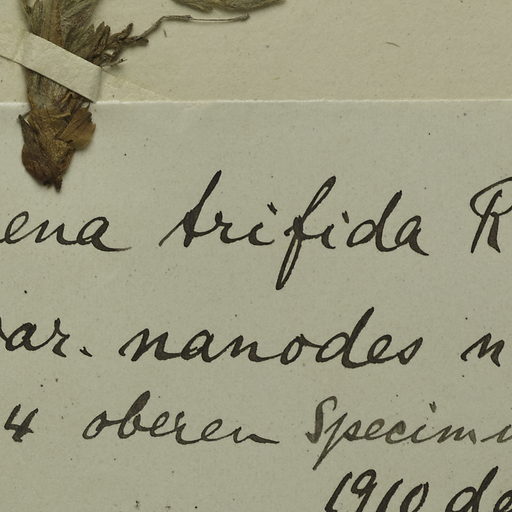 ena trifida R
ar. nanodes n
4 oberen Specim
1910 de